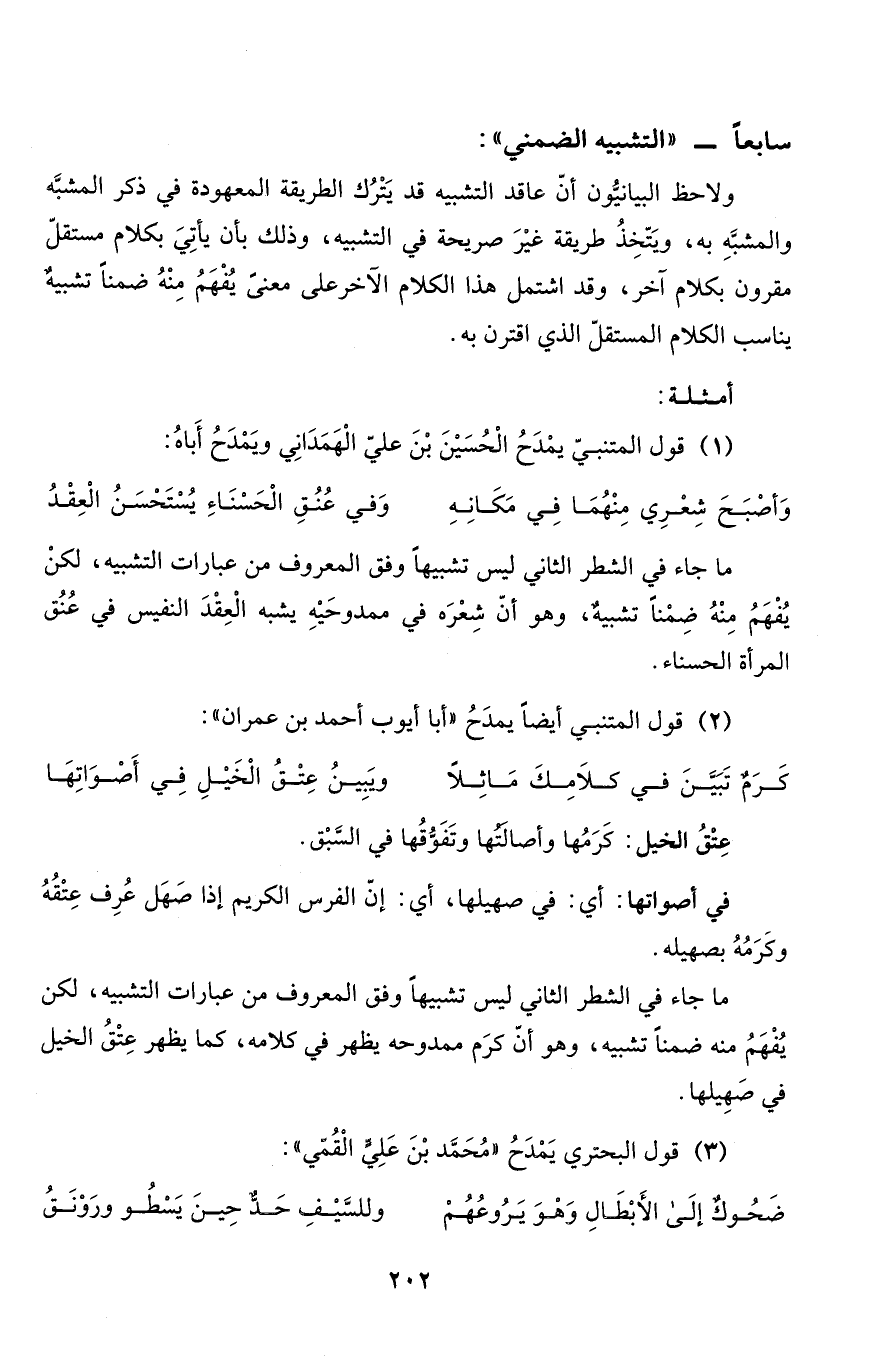 سابعاً ــ «التشبيه الضمني»:
ولاحظ البيانيُّون أنّ عاقد التشبيه قد يَتْرُك الطريقة المعهودة في ذكر المشبَّه
والمشبَّهِ به، ويَتّخِذُ طريقة غيْرَ صريحة في التشبيه، وذلك بأن يأتِيَ بكلام مستقلّ
مقرون بكلام آخر، وقد اشتمل هذا الكلام الآخرعلى معنىً يُفْهَمُ مِنْهُ ضمناً تشبيهٌ
يناسب الكلام المستقلّ الذي اقترن به.
أمثلة:
(١) قول المتنبيّ يمْدَحُ الْحُسَيْنَ بْنَ عليّ الْهَمَدَانِي ويَمْدَحُ أَباهُ:
وَأصْبَحَ شِعْرِي مِنْهُمَا فِي مَكَانِهِ وَفي عُنُقِ الْحَسْنَاءِ يُسْتَحْسَنُ الْعِقْدُ
ما جاء في الشطر الثاني ليس تشبيهاً وفق المعروف من عبارات التشبيه، لكنْ
يُفْهَمُ مِنْهُ ضِمْناً تشبيهٌ، وهو أنّ شِعْرَه في ممدوحَيْهِ يشبه الْعِقْدَ النفيس في عُنُق
المرأة الحسناء.
(٢) قول المتنبي أيضاً يمدَحُ «أبا أيوب أحمد بن عمران»:
كَرَمٌ تَبَيَّنَ في كلاَمِكَ مَاثِلاً ويَبِينُ عِتْقُ الْخَيْلِ فِي أَصْوَاتِهَا
عِتْقُ الخيل: كَرَمُها وأصالَتُها وتَفَوُّقُها في السَّبْق.
في أصواتها: أي: في صهيلها، أي: إنّ الفرس الكريم إذا صَهَل عُرِف عِتْقُهُ
وكَرَمُهُ بصهيله.
ما جاء في الشطر الثاني ليس تشبيهاً وفق المعروف من عبارات التشبيه، لكن
يُفْهَمُ منه ضمناً تشبيه، وهو أنّ كرَم ممدوحه يظهر في كلامه، كما يظهر عِتْقُ الخيل
في صَهِيلها.
(٣) قول البحتري يَمْدَحُ «مُحَمَّد بْنَ عَلِيٍّ الْقُمّي»:
ضَحُوكٌ إلَىٰ الأَبْطَالِ وَهْوَ يَرُوعُهُمْ وللسَّيْفِ حَدٌّ حِينَ يَسْطُو ورَوْنَقُ
٢٠٢